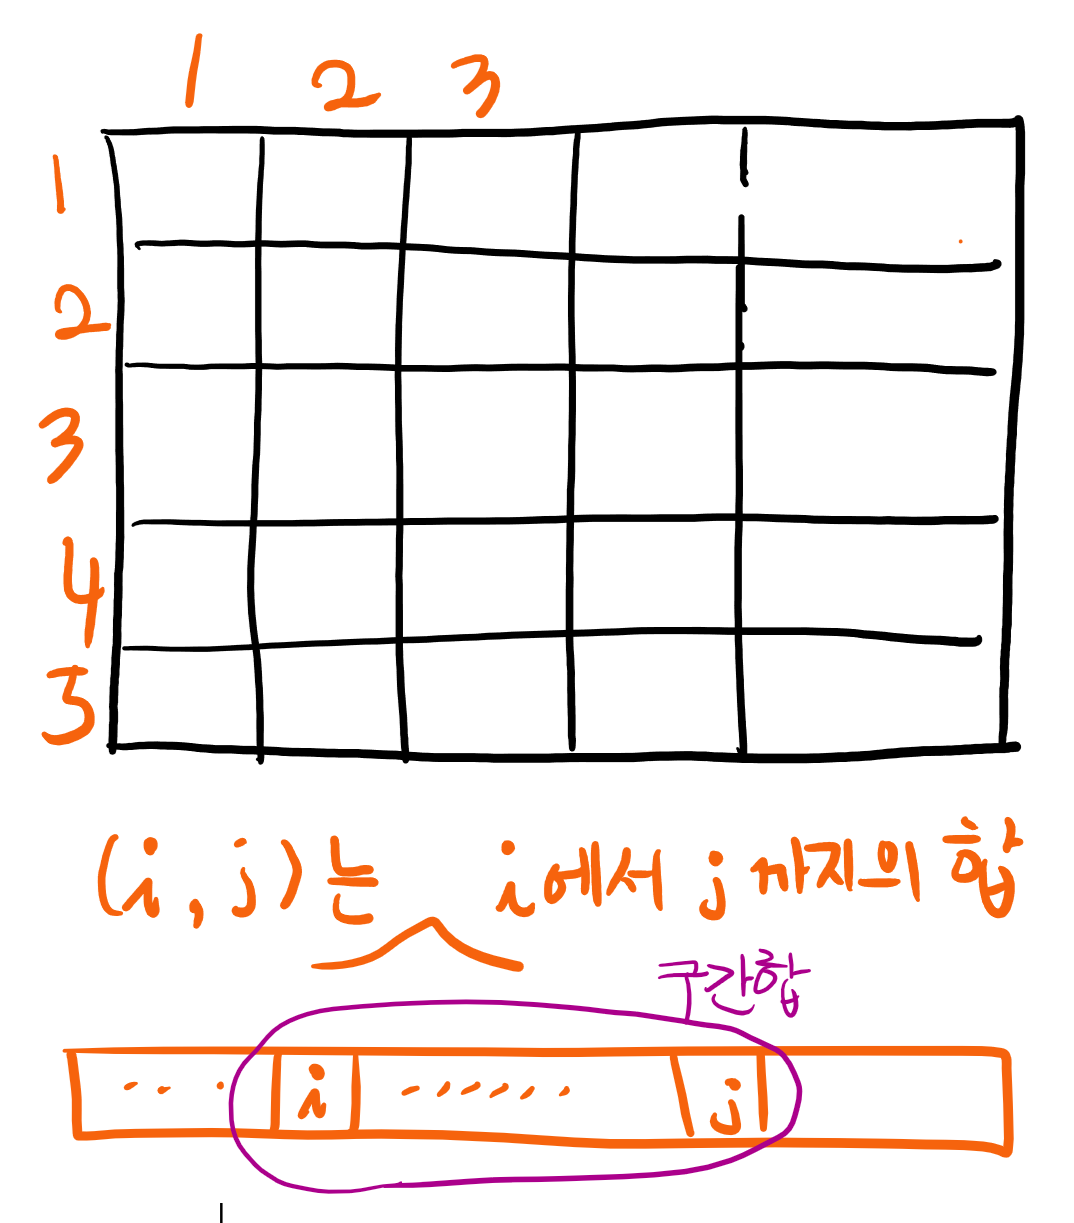 1 2 3
1
2
3
4
5
(i, j)는 i에서 j까지의 합
구간합
i j